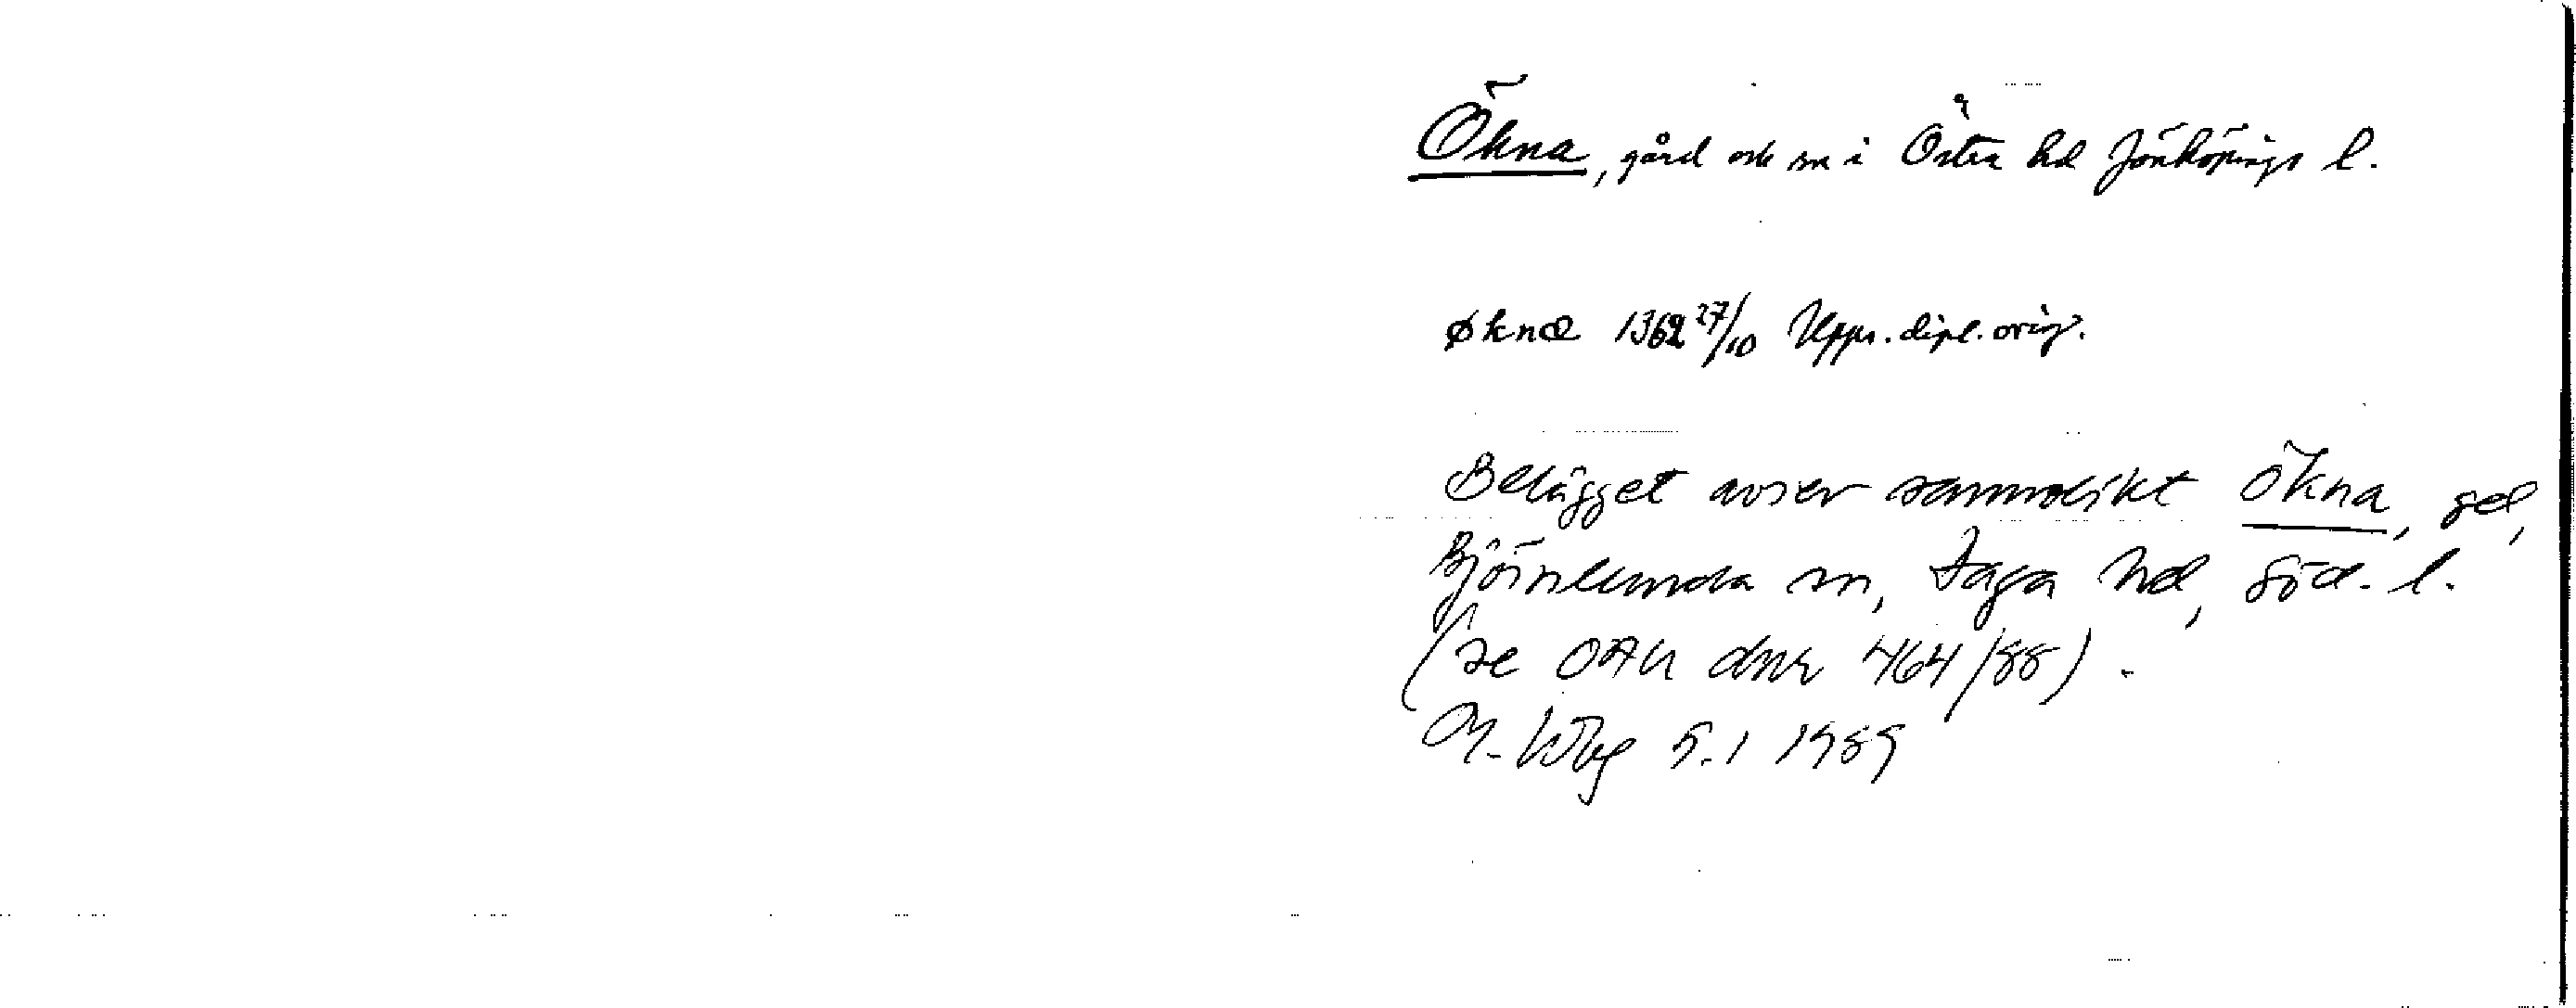 Ökna, gård och sn i Östra hd Jönköpings l.
øknæ 1362 27/10 Upps. dipl. orig.
Belägget avser sannolikt Ökna, gd,
Björnlunda sn, Daga hd, Söd. l.
(se OAU dnr 464/88).
5.1 1989